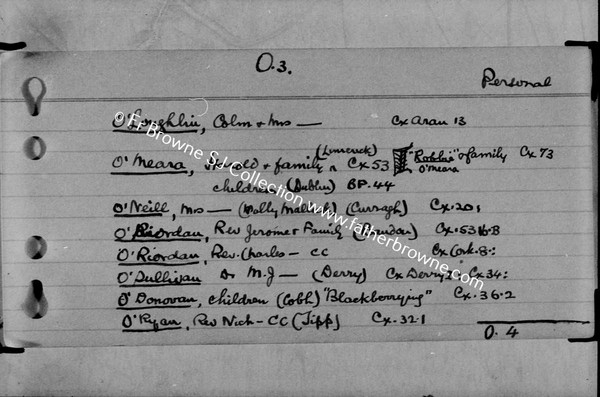 O.3.
Personal
O'Loughlin, Colm & Mrs — Cx Aran 13
(Limerick)
O'Meara, & family Cx 53 & family Cx 73
O'Meara
children (Dublin) BP. 44
O'Neill, Mrs — (Molly Mallagh) (Curragh) Cx. 20:
O'Riordan, Rev Jerome & Family Cx. 53 16.B
O'Riordan, Rev. Charles — CC Cx Cork. 8:
O'Sullivan Dr M.J — (Derry) Cx Derry 2: Cx 34:
O'Donovan, children (Cobh) "Blackberrying" Cx. 36.2
O'Ryan, Rev Nich — CC (Tipp) Cx. 32.1
O. 4
© Fr Browne SJ Collection www.fatherbrowne.com